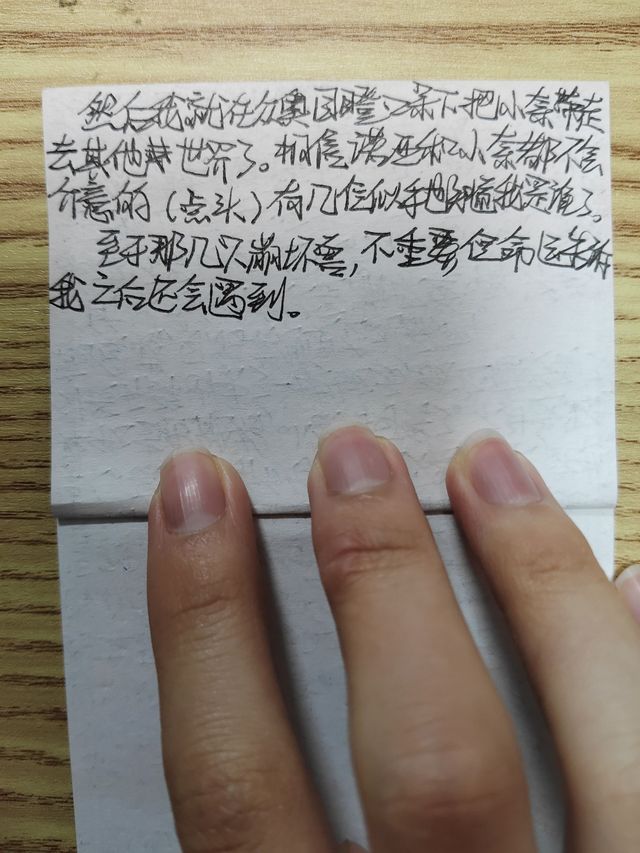 然后我就在分奥团瞪口呆下把小奈带走
去其他世界了。相信诺亚和小奈都不会
介意的（点头）有几位似乎也知道我是谁了。
至于那几只崩坏兽，不重要但命运告诉
我之后还会遇到。